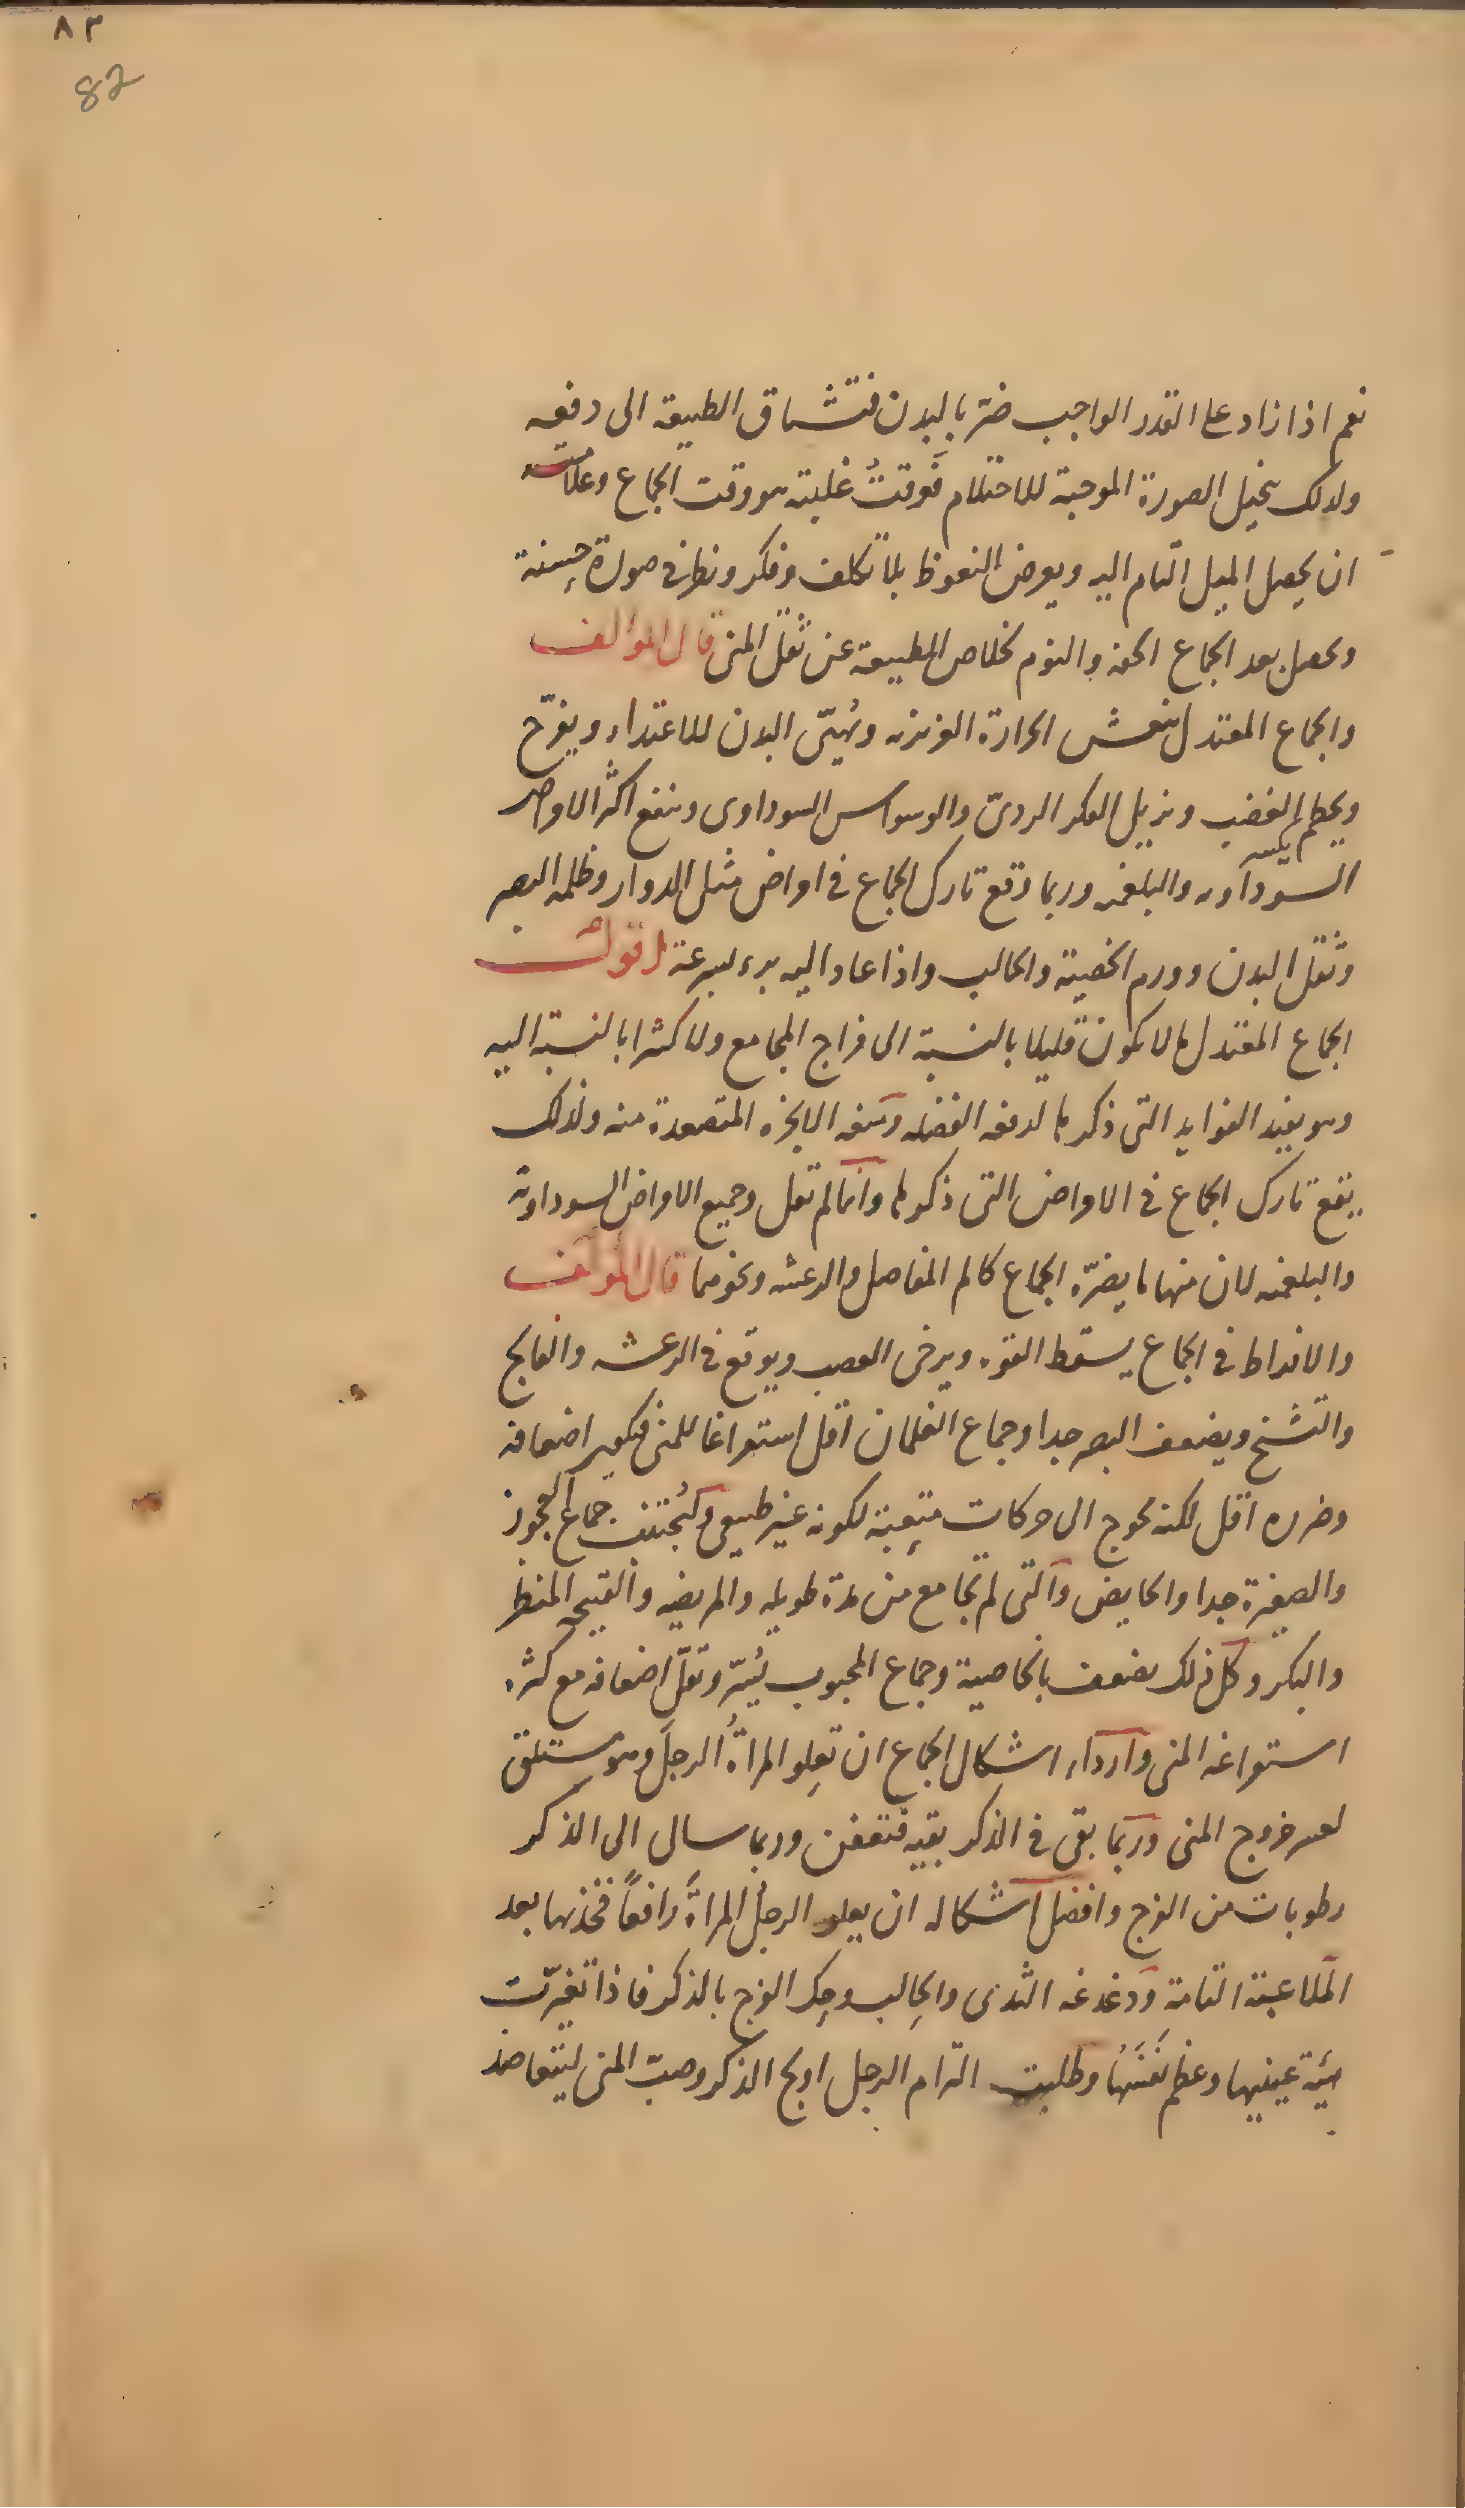 ٨٣
82
نعم اذا زاد على القدر الواجب ضرّ بالبدن فتشتاق الطبيعة الى دفعه
ولذلك يخيل الصورة الموجبة للاحتلام فوقتُ غلبته هو وقت الجماع وعلامته
ان يحصل الميل التام اليه ويعرض النعوظ بلا تكلف وفكر ونظر فى صورة حسنة
ويحصل بعد الجماع الخفة والنوم لخلاص الطبيعة عن ثقل المنى قال المؤلف
والجماع المعتدل ينعش الحرارة الغريزية ويُهيّئ البدن للاغتداء ويفرّح
ويحطم الغضب ويزيل الفكر الردىّ والوسواس السوداوى وينفع اكثر الامراض
السوداوية والبلغمية وربما وقع تارك الجماع فى امراض مثل الدوار وظلمة البصر
وثقل البدن وورم الخصية والحالب واذا عاد اليه برء بسرعة اقول
الجماع المعتدل ما لا يكون قليلا بالنسبة الى مزاج المجامع ولا كثيرا بالنسبة اليه
وهو يفيد الفوايد التى ذكرها لدفعه الفضلة ومنعه الابخرة المتصعدة منه ولذلك
يقع تارك الجماع فى الامراض التى ذكرها وانما لم يقل وجميع الامراض السوداوية
والبلغمية لان منها ما يضرّه الجماع كالم المفاصل والرعشة ونحوهما قال المؤلف
والافراط فى الجماع يسقط القوة ويرخى العصب ويوقع فى الرعشة والفالج
والتشنج ويضعف البصر جدا وجماع الغلمان اقل استفراغا للمنى فيكون اضعافه
وضرره اقل لكنه يحوج الى حركات متعِبة لكونه غير طبيعى وليُجتنب جماع العجوز
والصغيرة جدا والحايض والتى لم تجامع من مدة طويلة والمريضة والقبيحة المنظر
والبكر وكل ذلك يضعف بالخاصية وجماع المحبوب يُسِرّ وتقلّ اضعافه مع كثرة
استفراغه المنى واردأ اشكال الجماع ان تعلو المراةُ الرجلَ وهو مستلق
لعسر خروج المنى وربما بقى فى الذكر بقية فتعفن وربما سال الى الذكر
رطوبات من الفرج وافضل اشكاله ان يعلو الرجلُ المراةَ رافعاً فخذيها بعد
الملاعبة التامة ودغدغة الثدى والحالب وحك الفرج بالذكر فاذا تغيّرت
هيئة عينيها وعظم نَفَسُها وطلبت التزام الرجل اولج الذكر وصبّ المنى ليتعاضد